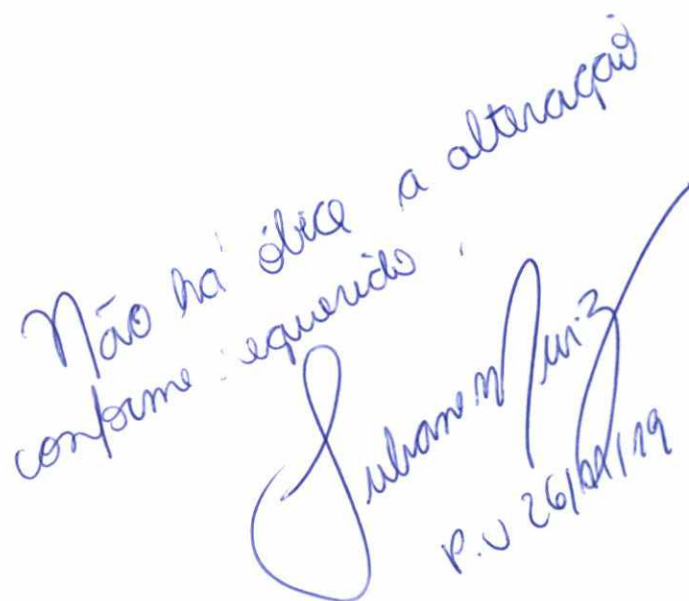 Não há óbice a alteração
conforme requerido.
Juliane M Muniz
P.V 26/
/19